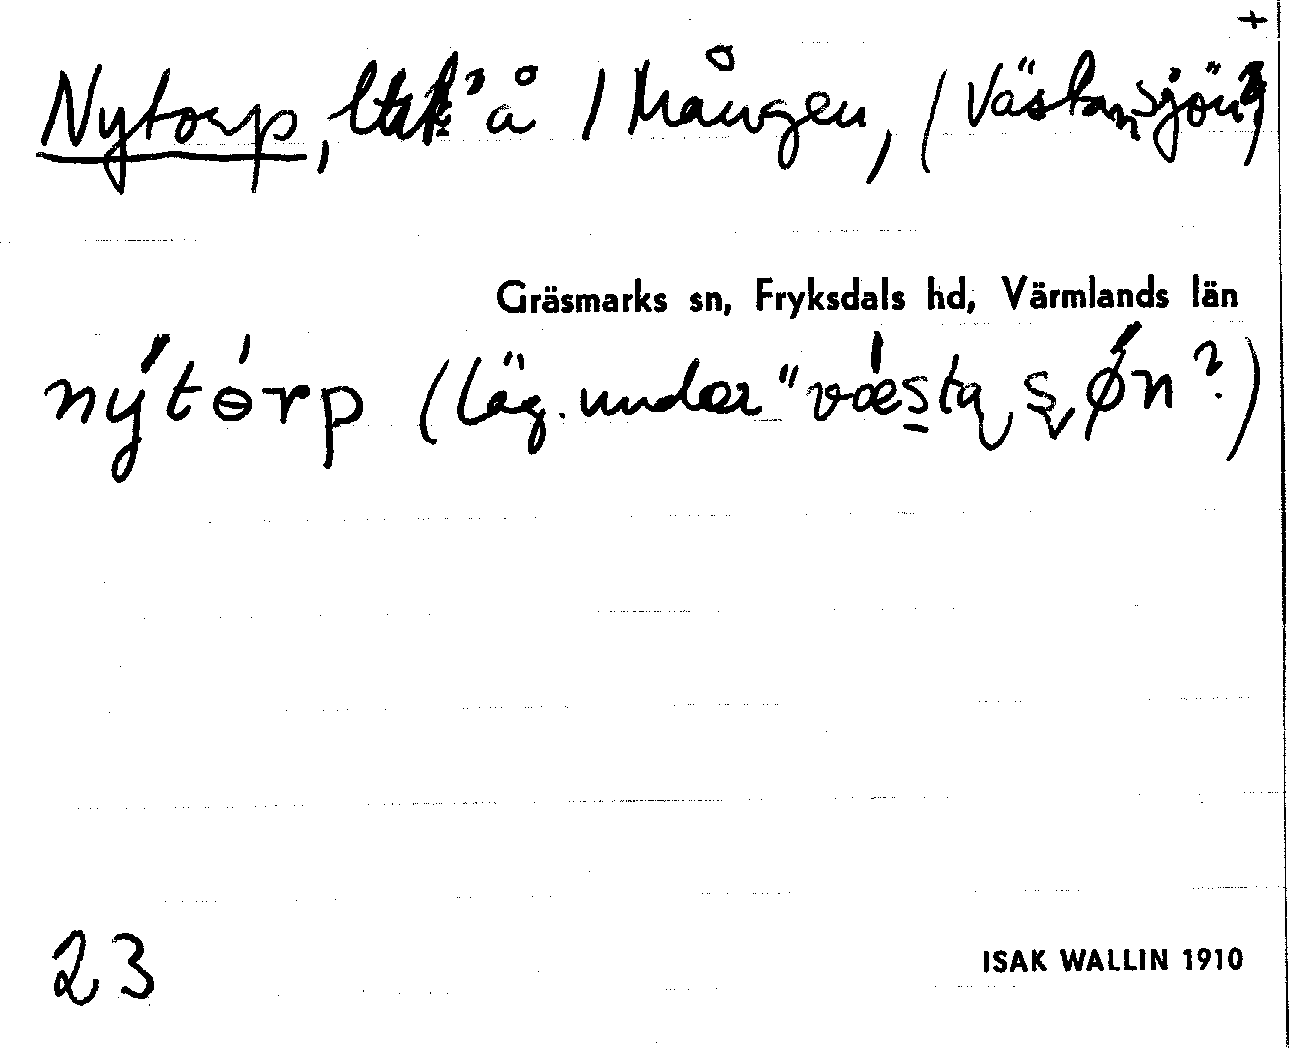 +
Nytorp, ltr? å 1 Mången, (Västansjön?)
Gräsmarks sn, Fryksdals hd, Värmlands län
nýtórp (läg. under "væsta şøn?)
23
ISAK WALLIN 1910